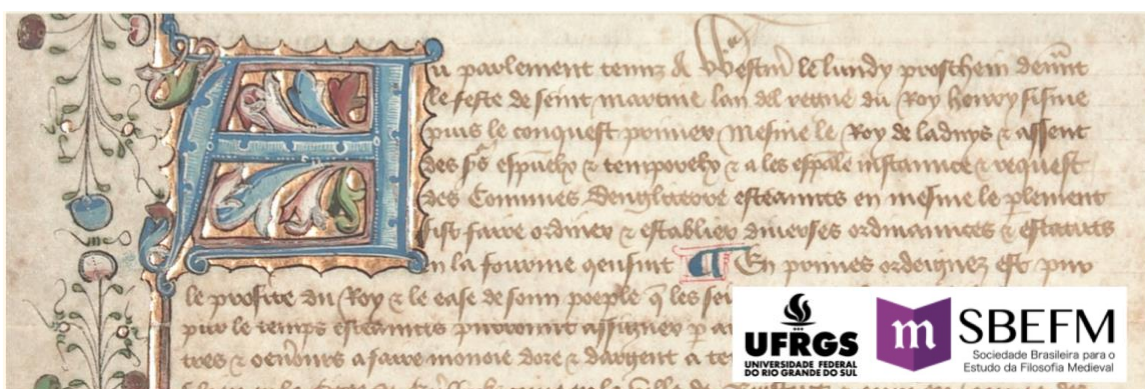 Au parlement tenuz a Westm̄ le lundy proschein devāt
le feste de seint martine lan del regne du Roy henry sisme
puis le conquest primer mesme le Roy de ladvys & assent
des espūelx & temporelx & a les espāle instaunce & request
des Communes Dengleterre esteauntz en mesme le plement
fist faire ordiner & establier diverses ordinaunces & estatutz
en la fourme qensuit En primes ordeignez est pur
le profite du Roy & le ease de soun poeple q les
pur le temps esteauntz purront assigner p
a faire monoie dore & dargent a
UFRGS
UNIVERSIDADE FEDERAL
DO RIO GRANDE DO SUL
m SBEFM
Sociedade Brasileira para o
Estudo da Filosofia Medieval